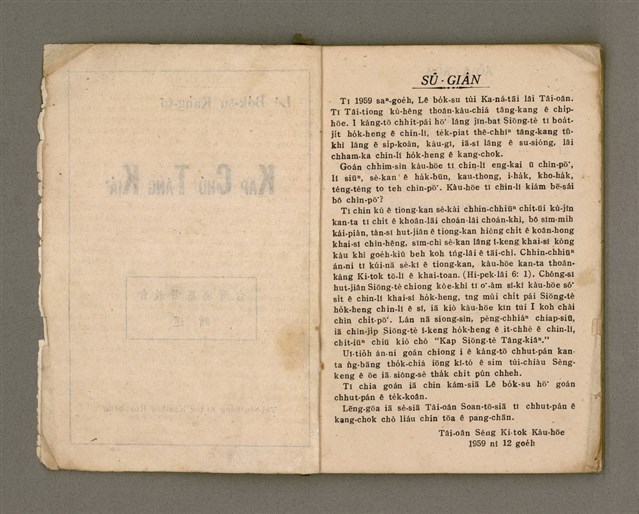 SŪ-GIÂN
Tī 1959 saⁿ-goe̍h, Lê bo̍k-su tùi Ka-ná-tāi lâi Tâi-oân.
Tī Tâi-tiong kù-hêng thoân-kàu-chiá tâng-kang ê chi̍p-
hōe. I káng-tō chhit-pái hō͘ lâng jīn-bat Siōng-tè tī hoa̍t-
ji̍t ho̍k-heng ê chin-lí, te̍k-piat thê-chhíⁿ tâng-kang tû-
khì lâng ê sip-koàn, kàu-gī, iā-sī lâng ê su-sióng, lâi
chham-ka chin-lí ho̍k-heng ê kang-chok.
Goán chhim-sìn kàu-hōe tī chin-lí eng-kai ū chìn-pō͘,
lí siūⁿ, sè-kan ê ha̍k-būn, kau-thong, i-ha̍k, kho-ha̍k,
téng-téng to teh chìn-pō͘. Kàu-hōe tī chin-lí kiám bē-sái
bô chìn-pō͘?
Tī chin kú ê tiong-kan sè-kài chhin-chhiūⁿ chi̍t-ūi kù-jîn
kan-ta tī chit ê khoân-lāi choán-lâi choán-khì, bô sím-mih
kái-piàn, tàn-sī hut-jiân ê tiong-kan hiòng chi̍t ê koân-hong
khai-sí chìn-hêng, sīm-chì sè-kan lâng í-keng khai-sí kòng
kàu khì goe̍h-kiû beh koh tńg-lâi ê tāi-chì. Chhin-chhiūⁿ
án-ni tī kúi-nā sè-kí ê tiong-kan, kàu-hōe kan-ta thoân-
kàng Ki-tok tō-lí ê khai-toan. (Hi-pek-lâi 6: 1). Chóng-sī
hut-jiân Siōng-tè chiong kòe-khì tī o͘-àm sî-kî kàu-hōe só͘
sit ê chin-lí khai-sí ho̍k-heng, tng múi chi̍t pái Siōng-tè
ho̍k-heng chin-lí ê sî, iā kiò kàu-hōe kin tùi I koh chài
chìn chi̍t-pō͘. Lán nā siong-sìn, pèng-chhiáⁿ chiap-siū,
iā chìn-ji̍p Siōng-tè í-keng ho̍k-heng ê it-chhè ê chin-lí,
chit-iūⁿ chiū kiò chò "Kap Siōng-tè Tâng-kiâⁿ."
Ūi-tio̍h án-ni goán chiong i ê káng-tō chhut-pán kan-
ta ǹg-bāng tho̍k-chiá iōng kî-tó ê sim tùi-chiàu Sèng-
keng ê ōe iā siông-sè tha̍k chit pún chheh.
Tī chia goán iā chin kám-siā Lê bo̍k-su hō͘ goán
chhut-pán ê te̍k-koân.
Lēng-gōa iā sè-siā Tâi-oân Soan-tō-siā tī chhut-pán ê
kang-chok chò liáu chin tōa ê pang-chān.
Tâi-oân Sèng Ki-tok Kàu-hōe
1959 nî 12 goe̍h